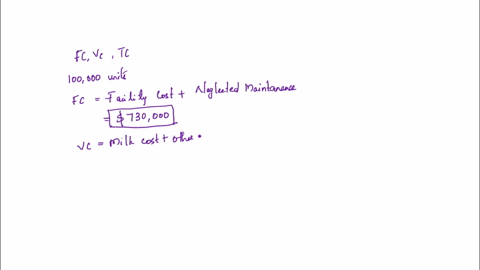 FC, VC, TC
100,000 units
FC = Faility cost + Neglected Maintanence
= $730,000
VC = Milk cost + othe